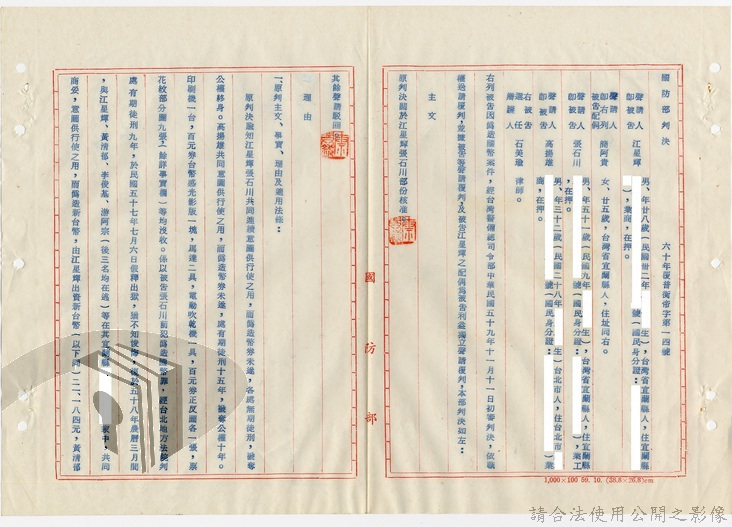 國防部判決　六十年覆普衡帝字第一四號
聲請人
卽被告　江星輝　男、年廿八歲（民國卅二年　生），台灣省宜蘭縣人，住宜蘭縣
　號（國民身分證：　），業商，在押。
聲請人
卽右列
被告配偶　簡阿貴　女、廿五歲，台灣省宜蘭縣人，住址同右。
聲請人
卽被告　張石川　男、年五十一歲（民國九年　生），台灣省宜蘭縣人，住宜蘭縣
　號（國民身分證：　），業工
，在押。
聲請人
卽被告　高揚雄　男、年三十二歲（民國二十八年　生）台北市人，住台北市
　號（國民身分證：　）業
商，在押。
右被告
選任
辯護人　石美瑜　律師。
右列被告因偽造國幣案件，經台灣警備總司令部中華民國五十九年十一月十一日初審判決，依職
權送請覆判，並據被告等聲請覆判，及被告江星輝之配偶爲被告利益獨立聲請覆判，本部判決如左：
主文
原判決關於江星輝張石川部份核准。
國防部
其餘聲請駁回。
理由
一、原判主文、事實、理由及適用法條：
原判決諭知江星輝張石川共同連續意圖供行使之用，而偽造幣券未遂，各處無期徒刑，褫奪
公權終身。高揚雄共同意圖供行使之用，而偽造幣券未遂，處有期徒刑十五年，褫奪公權十年。
印刷機一台，百元券台幣感光影版一塊，馬達二具，電動吹乾機一具，百元券正反面各一張，票
花紋部分圖九張，（餘詳事實欄）等均沒收。係以被告張石川前犯偽造國幣罪，經台北地方法院判
處有期徒刑九年，於民國五十七年七月六日假釋出獄，猶不知悛悔，復於五十八年農曆三月間
，與江星輝、黃清郎、李俊基、游阿宗（後三名均在逃）等在其宜蘭縣　家中，共同
商妥，意圖供行使之用，而偽造新台幣，由江星輝出資新台幣（以下同）二二、一八四元，黃清郎
1,000×100 59. 10. (38.8×26.8)cm
請合法使用公開之影像